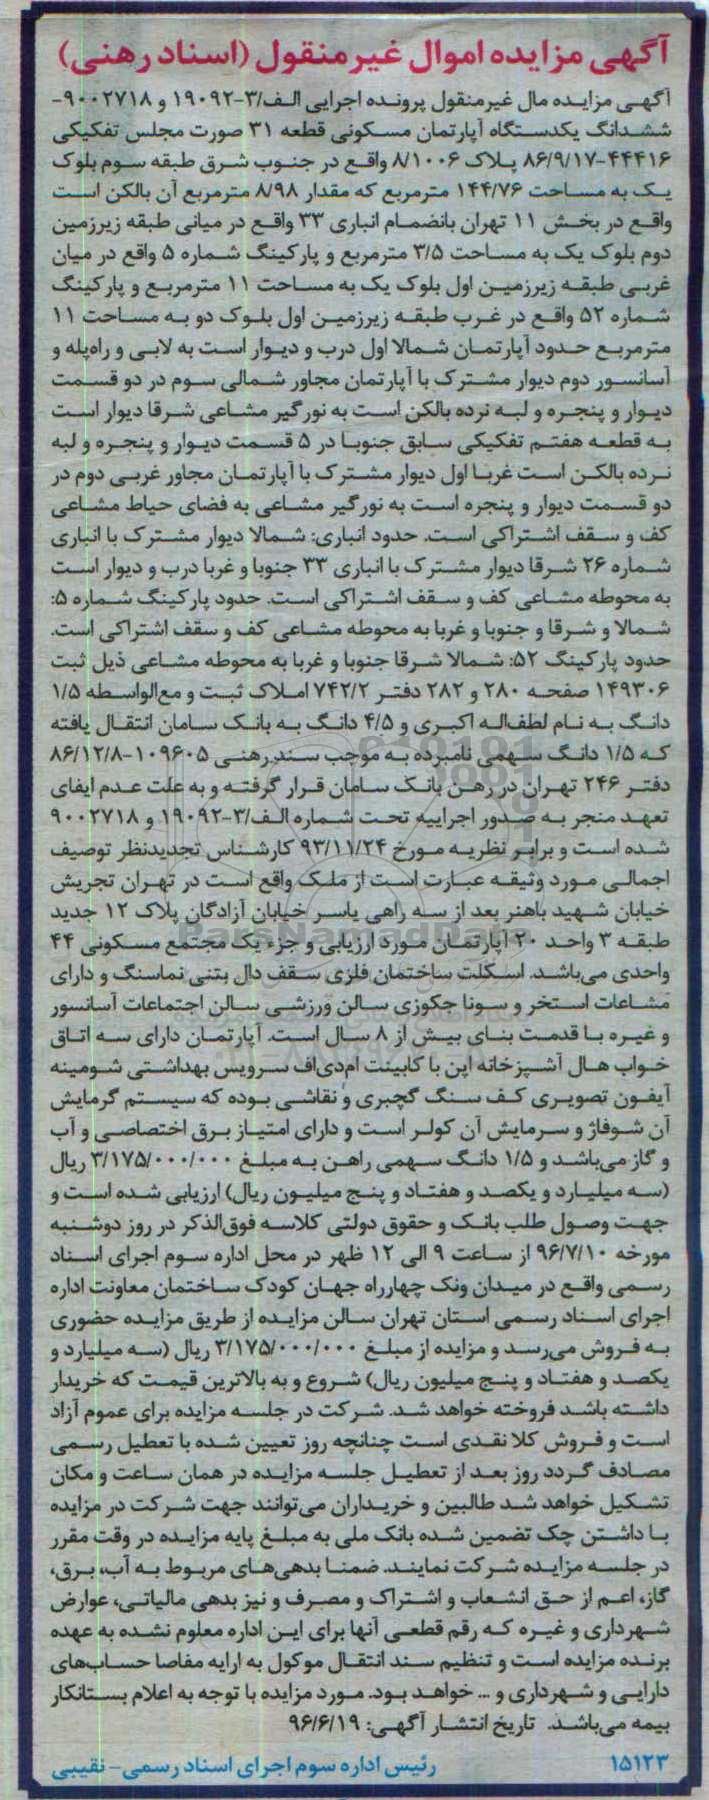 آگهی مزایده اموال غیرمنقول (اسناد رهنی)
آگهی مزایده مال غیرمنقول پرونده اجرایی الف/۳-۱۹۰۹۲ و ۹۰۰۲۷۱۸-
ششدانگ یکدستگاه آپارتمان مسکونی قطعه ۳۱ صورت مجلس تفکیکی
۴۴۴۱۶-۸۶/۹/۱۷ پلاک ۸/۱۰۰۶ واقع در جنوب شرق طبقه سوم بلوک
یک به مساحت ۱۴۴/۷۶ مترمربع که مقدار ۸/۹۸ مترمربع آن بالکن است
واقع در بخش ۱۱ تهران بانضمام انباری ۳۳ واقع در میانی طبقه زیرزمین
دوم بلوک یک به مساحت ۳/۵ مترمربع و پارکینگ شماره ۵ واقع در میان
غربی طبقه زیرزمین اول بلوک یک به مساحت ۱۱ مترمربع و پارکینگ
شماره ۵۲ واقع در غرب طبقه زیرزمین اول بلوک دو به مساحت ۱۱
مترمربع حدود آپارتمان شمالا اول درب و دیوار است به لابی و راه‌پله و
آسانسور دوم دیوار مشترک با آپارتمان مجاور شمالی سوم در دو قسمت
دیوار و پنجره و لبه نرده بالکن است به نورگیر مشاعی شرقا دیوار است
به قطعه هفتم تفکیکی سابق جنوبا در ۵ قسمت دیوار و پنجره و لبه
نرده بالکن است غربا اول دیوار مشترک با آپارتمان مجاور غربی دوم در
دو قسمت دیوار و پنجره است به نورگیر مشاعی به فضای حیاط مشاعی
کف و سقف اشتراکی است. حدود انباری: شمالا دیوار مشترک با انباری
شماره ۲۶ شرقا دیوار مشترک با انباری ۳۳ جنوبا و غربا درب و دیوار است
به محوطه مشاعی کف و سقف اشتراکی است. حدود پارکینگ شماره ۵:
شمالا و شرقا و جنوبا و غربا به محوطه مشاعی کف و سقف اشتراکی است.
حدود پارکینگ ۵۲: شمالا شرقا جنوبا و غربا به محوطه مشاعی ذیل ثبت
۱۴۹۳۰۶ صفحه ۲۸۰ و ۲۸۲ دفتر ۷۴۲/۲ املاک ثبت و مع‌الواسطه ۱/۵
دانگ به نام لطف‌اله اکبری و ۴/۵ دانگ به بانک سامان انتقال یافته
که ۱/۵ دانگ سهمی نامبرده به موجب سند رهنی ۱۰۹۶۰۵-۸۶/۱۲/۸
دفتر ۲۴۶ تهران در رهن بانک سامان قرار گرفته و به علت عدم ایفای
تعهد منجر به صدور اجراییه تحت شماره الف/۳-۱۹۰۹۲ و ۹۰۰۲۷۱۸
شده است و برابر نظریه مورخ ۹۳/۱۱/۲۴ کارشناس تجدیدنظر توصیف
اجمالی مورد وثیقه عبارت است از ملک واقع است در تهران تجریش
خیابان شهید باهنر بعد از سه راهی یاسر خیابان آزادگان پلاک ۱۲ جدید
طبقه ۳ واحد ۲۰ آپارتمان مورد ارزیابی و جزء یک مجتمع مسکونی ۴۴
واحدی می‌باشد. اسکلت ساختمان فلزی سقف دال بتنی نماسنگ و دارای
مشاعات استخر و سونا جکوزی سالن ورزشی سالن اجتماعات آسانسور
و غیره با قدمت بنای بیش از ۸ سال است. آپارتمان دارای سه اتاق
خواب هال آشپزخانه اپن با کابینت ام‌دی‌اف سرویس بهداشتی شومینه
آیفون تصویری کف سنگ گچبری و نقاشی بوده که سیستم گرمایش
آن شوفاژ و سرمایش آن کولر است و دارای امتیاز برق اختصاصی و آب
و گاز می‌باشد و ۱/۵ دانگ سهمی راهن به مبلغ ۳/۱۷۵/۰۰۰/۰۰۰ ریال
(سه میلیارد و یکصد و هفتاد و پنج میلیون ریال) ارزیابی شده است و
جهت وصول طلب بانک و حقوق دولتی کلاسه فوق‌الذکر در روز دوشنبه
مورخه ۹۶/۷/۱۰ از ساعت ۹ الی ۱۲ ظهر در محل اداره سوم اجرای اسناد
رسمی واقع در میدان ونک چهارراه جهان کودک ساختمان معاونت اداره
اجرای اسناد رسمی استان تهران سالن مزایده از طریق مزایده حضوری
به فروش می‌رسد و مزایده از مبلغ ۳/۱۷۵/۰۰۰/۰۰۰ ریال (سه میلیارد و
یکصد و هفتاد و پنج میلیون ریال) شروع و به بالاترین قیمت که خریدار
داشته باشد فروخته خواهد شد. شرکت در جلسه مزایده برای عموم آزاد
است و فروش کلا نقدی است چنانچه روز تعیین شده با تعطیل رسمی
مصادف گردد روز بعد از تعطیل جلسه مزایده در همان ساعت و مکان
تشکیل خواهد شد طالبین و خریداران می‌توانند جهت شرکت در مزایده
با داشتن چک تضمین شده بانک ملی به مبلغ پایه مزایده در وقت مقرر
در جلسه مزایده شرکت نمایند. ضمنا بدهی‌های مربوط به آب، برق،
گاز، اعم از حق انشعاب و اشتراک و مصرف و نیز بدهی مالیاتی، عوارض
شهرداری و غیره که رقم قطعی آنها برای این اداره معلوم نشده به عهده
برنده مزایده است و تنظیم سند انتقال موکول به ارایه مفاصا حساب‌های
دارایی و شهرداری و ... خواهد بود. مورد مزایده با توجه به اعلام بستانکار
بیمه می‌باشد. تاریخ انتشار آگهی: ۹۶/۶/۱۹
۱۵۱۲۳ رئیس اداره سوم اجرای اسناد رسمی- نقیبی
ParsNamadData